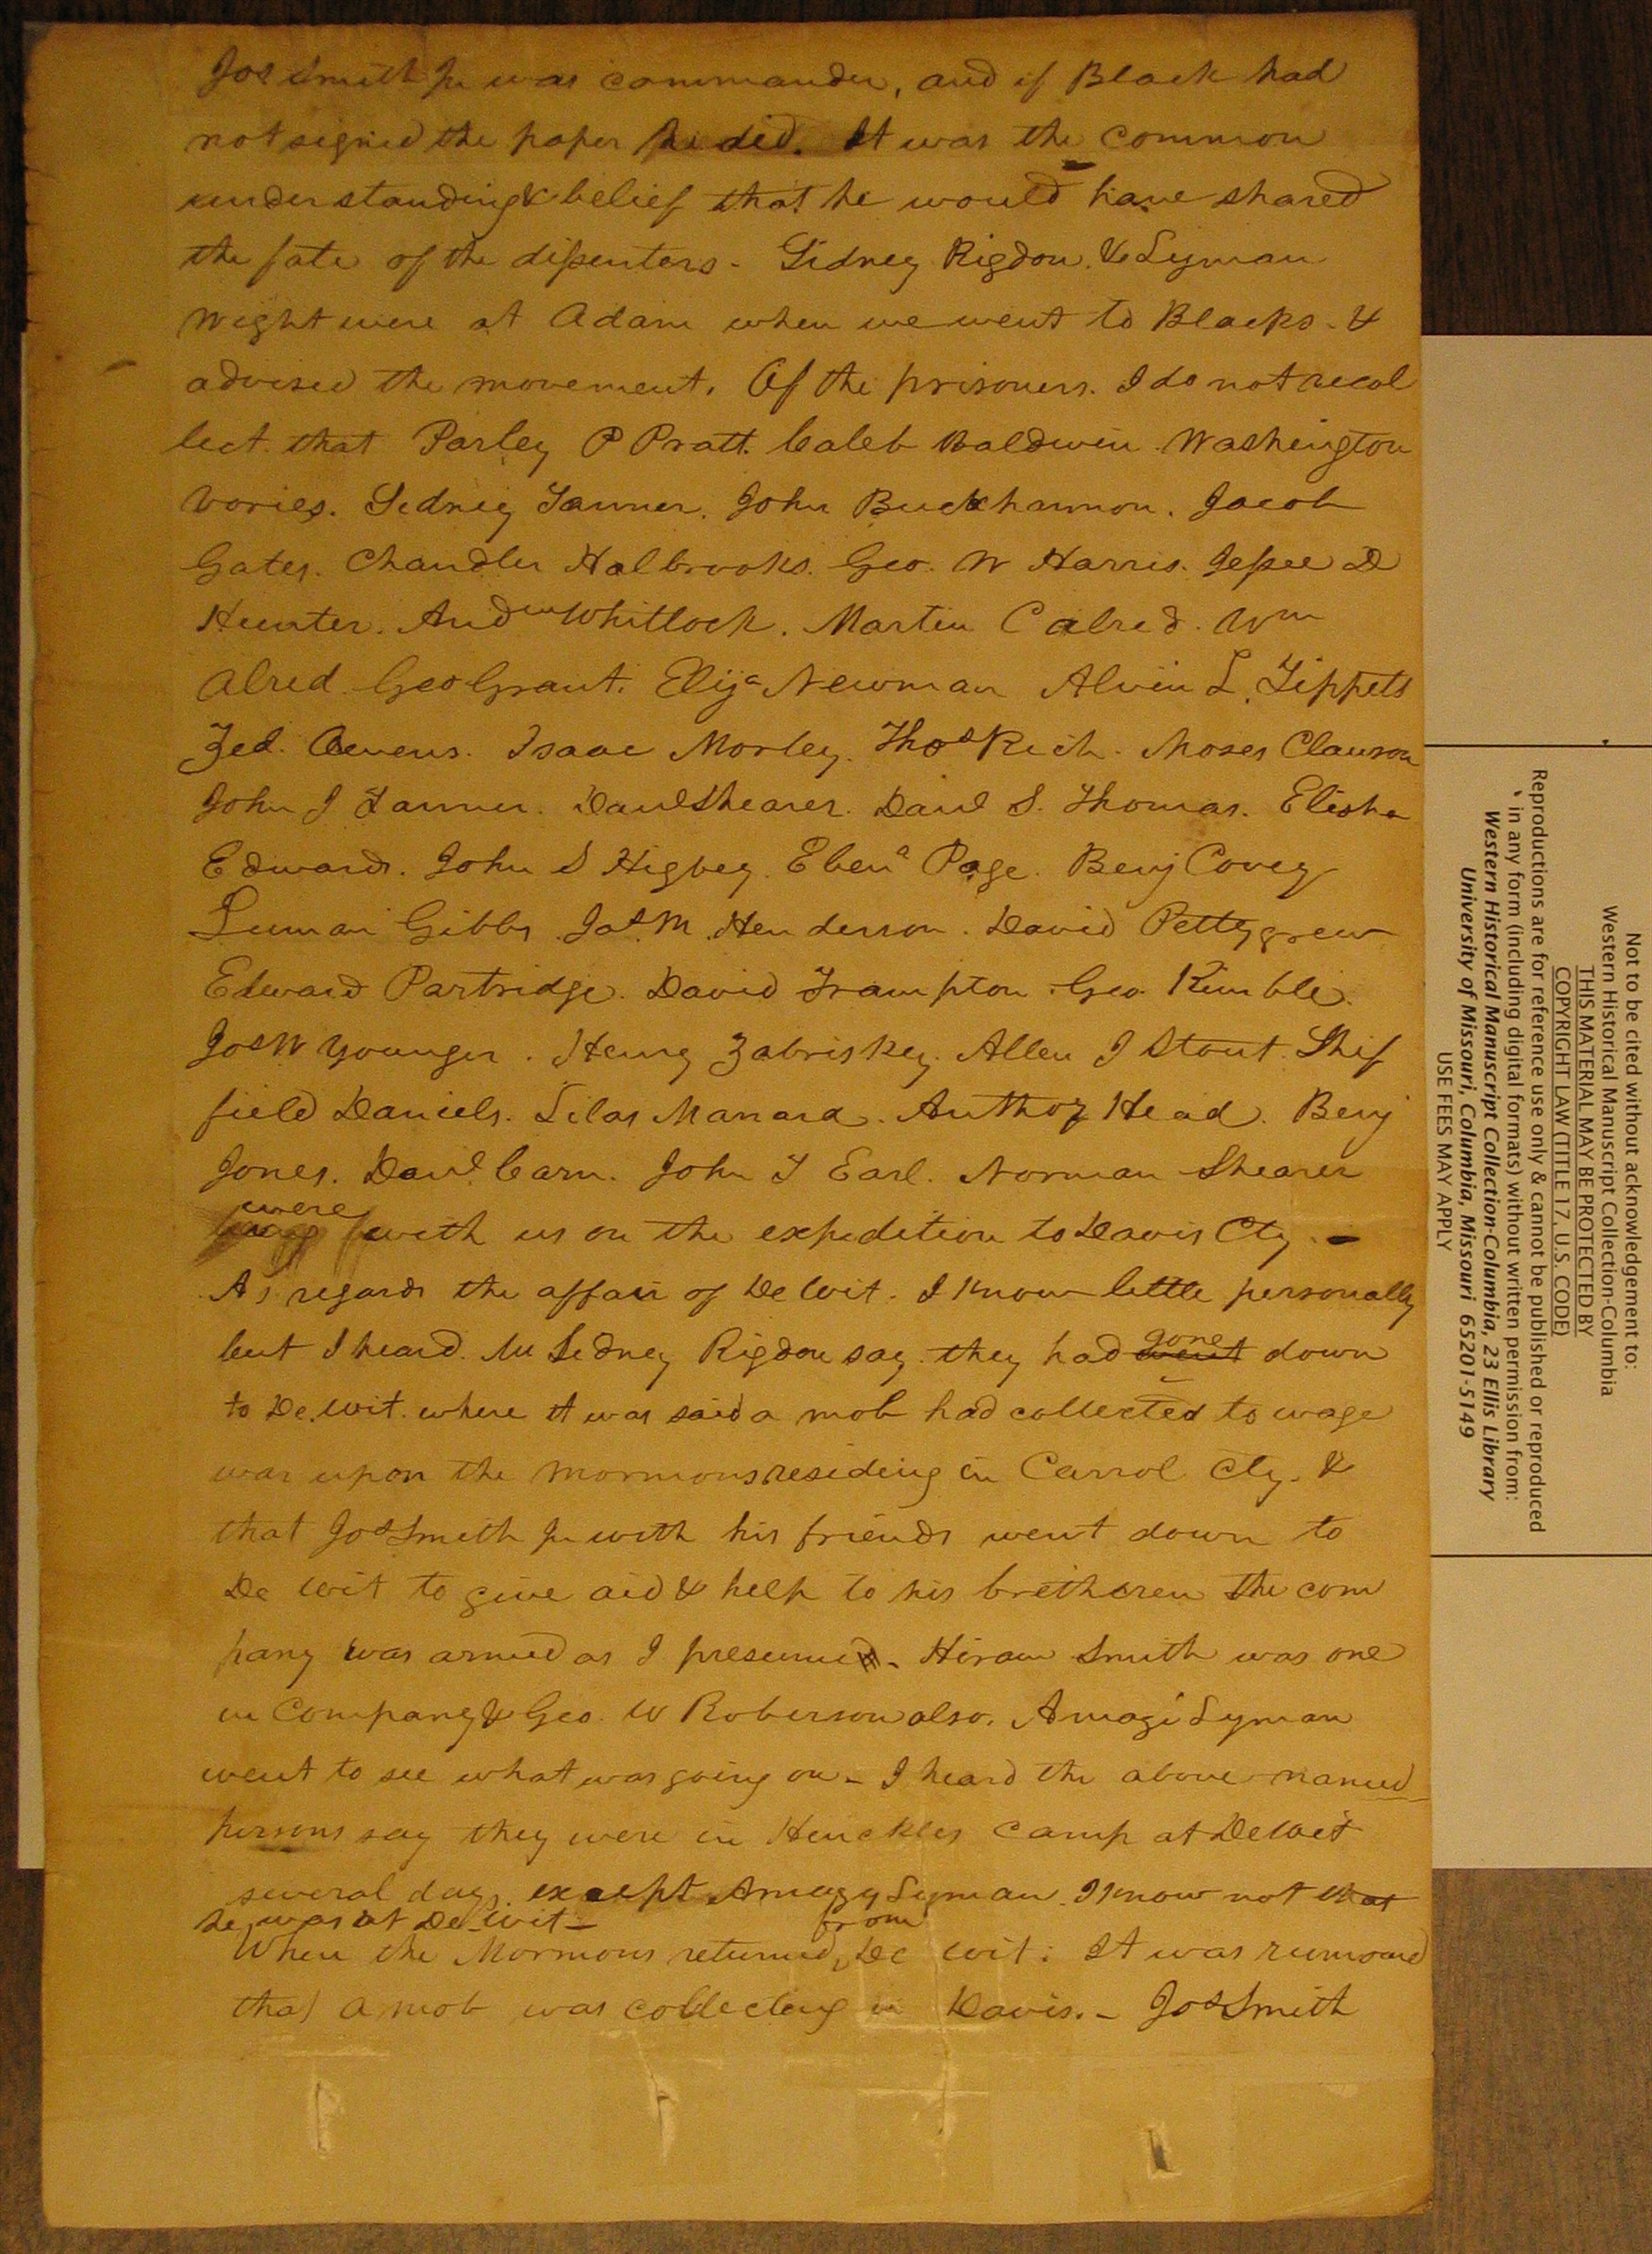 Jos Smith Jr was commander, and if Black had
not signed the paper he did. It was the common
understanding & belief that he would have shared
the fate of the dissenters - Sidney Rigdon. & Lyman
Wight were at Adam when we went to Blacks - &
advised the movement. Of the prisoners. I do not recol
lect. that Parley P Pratt. Caleb Baldwin. Washington
Vories. Sidney Tanner. John Buckhannon. Jacob
Gates. Chandler Holbrooks. Geo. W Harris. Jessee D
Hunter. Andw Whitlock. Martin C alred. Wm
Alred. Geo Grant. Elija Newman Alvin L. Tippets
Zed. Owens. Isaac Morley. Thos Rich. Moses Clawson
John J Tanner. Danl Shearer. Danl S. Thomas. Elisha
Edwards. John S Higbey. Ebena Page. Benj Covey
Luman Gibbs. Jas. M. Henderson. David Pettygrew
Edward Partridge. David Frampton. Geo. Kimble.
Jos W Younger. Henry Zabriskey. Allen J Stout. Shif
field Daniels. Silas Manard. Anthoy Head. Benj
Jones. Danl. Carn. John T Earl. Norman Shearer
were
with us on the expedition to Davis Cty. -
As regards the affair of De Wit. I know little personally
but I heard. Mr Sidney Rigdon say. they had went gone down
to De. Wit. where it was said a mob had collected to wage
war upon the mormons residing in Carrol Cty. &
that Jos Smith Jr with his friends went down to
De Wit to give aid & help to his bretheren the com
pany was armed as I presumed - Hiram Smith was one
in Company & Geo. W Roberson also. Amazi Lyman
went to see what was going on - I heard the above named
persons say they were in Henckles Camp at DeWit
several days. except Amazy Lyman. I know not that
he was at De-Wit -
When the Mormons returned, from De Wit. It was rumored
that a mob was collecting in Davis. - Jos Smith
Not to be cited without acknowledgement to:
Western Historical Manuscript Collection-Columbia
THIS MATERIAL MAY BE PROTECTED BY
COPYRIGHT LAW (TITLE 17, U.S. CODE)
Reproductions are for reference use only & cannot be published or reproduced
in any form (including digital formats) without written permission from:
Western Historical Manuscript Collection-Columbia, 23 Ellis Library
University of Missouri, Columbia, Missouri 65201-5149
USE FEES MAY APPLY